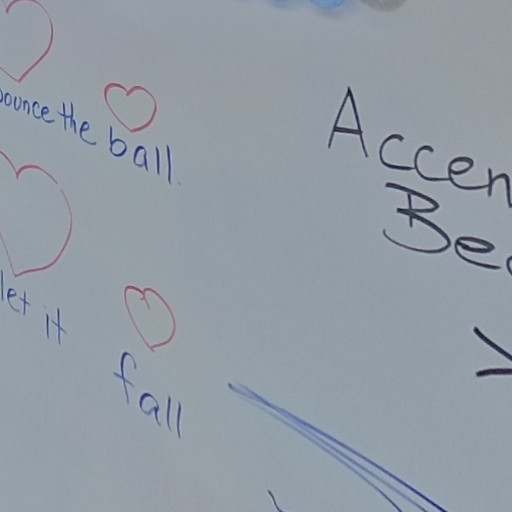 bounce the ball.
let it
fall
Accen
Be